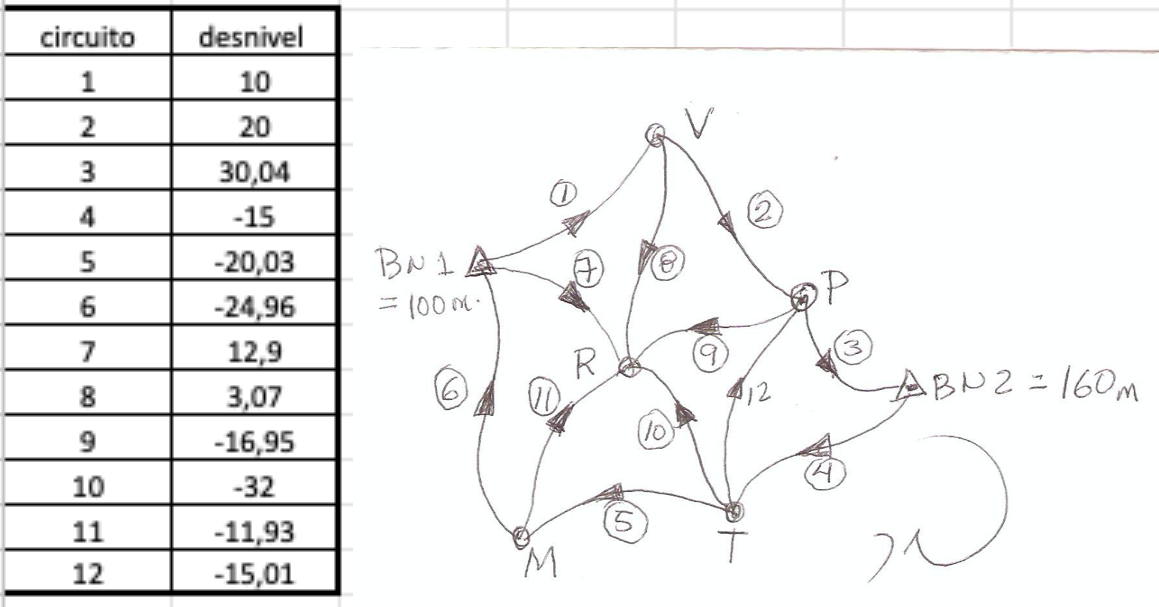 circuito desnivel
1 10
2 20
3 30,04
4 -15
5 -20,03
6 -24,96
7 12,9
8 3,07
9 -16,95
10 -32
11 -11,93
12 -15,01
V
1
2
BN1
= 100 m.
7
8
P
R
9
3
BN2 = 160m
6
11
12
10
4
5
T
M